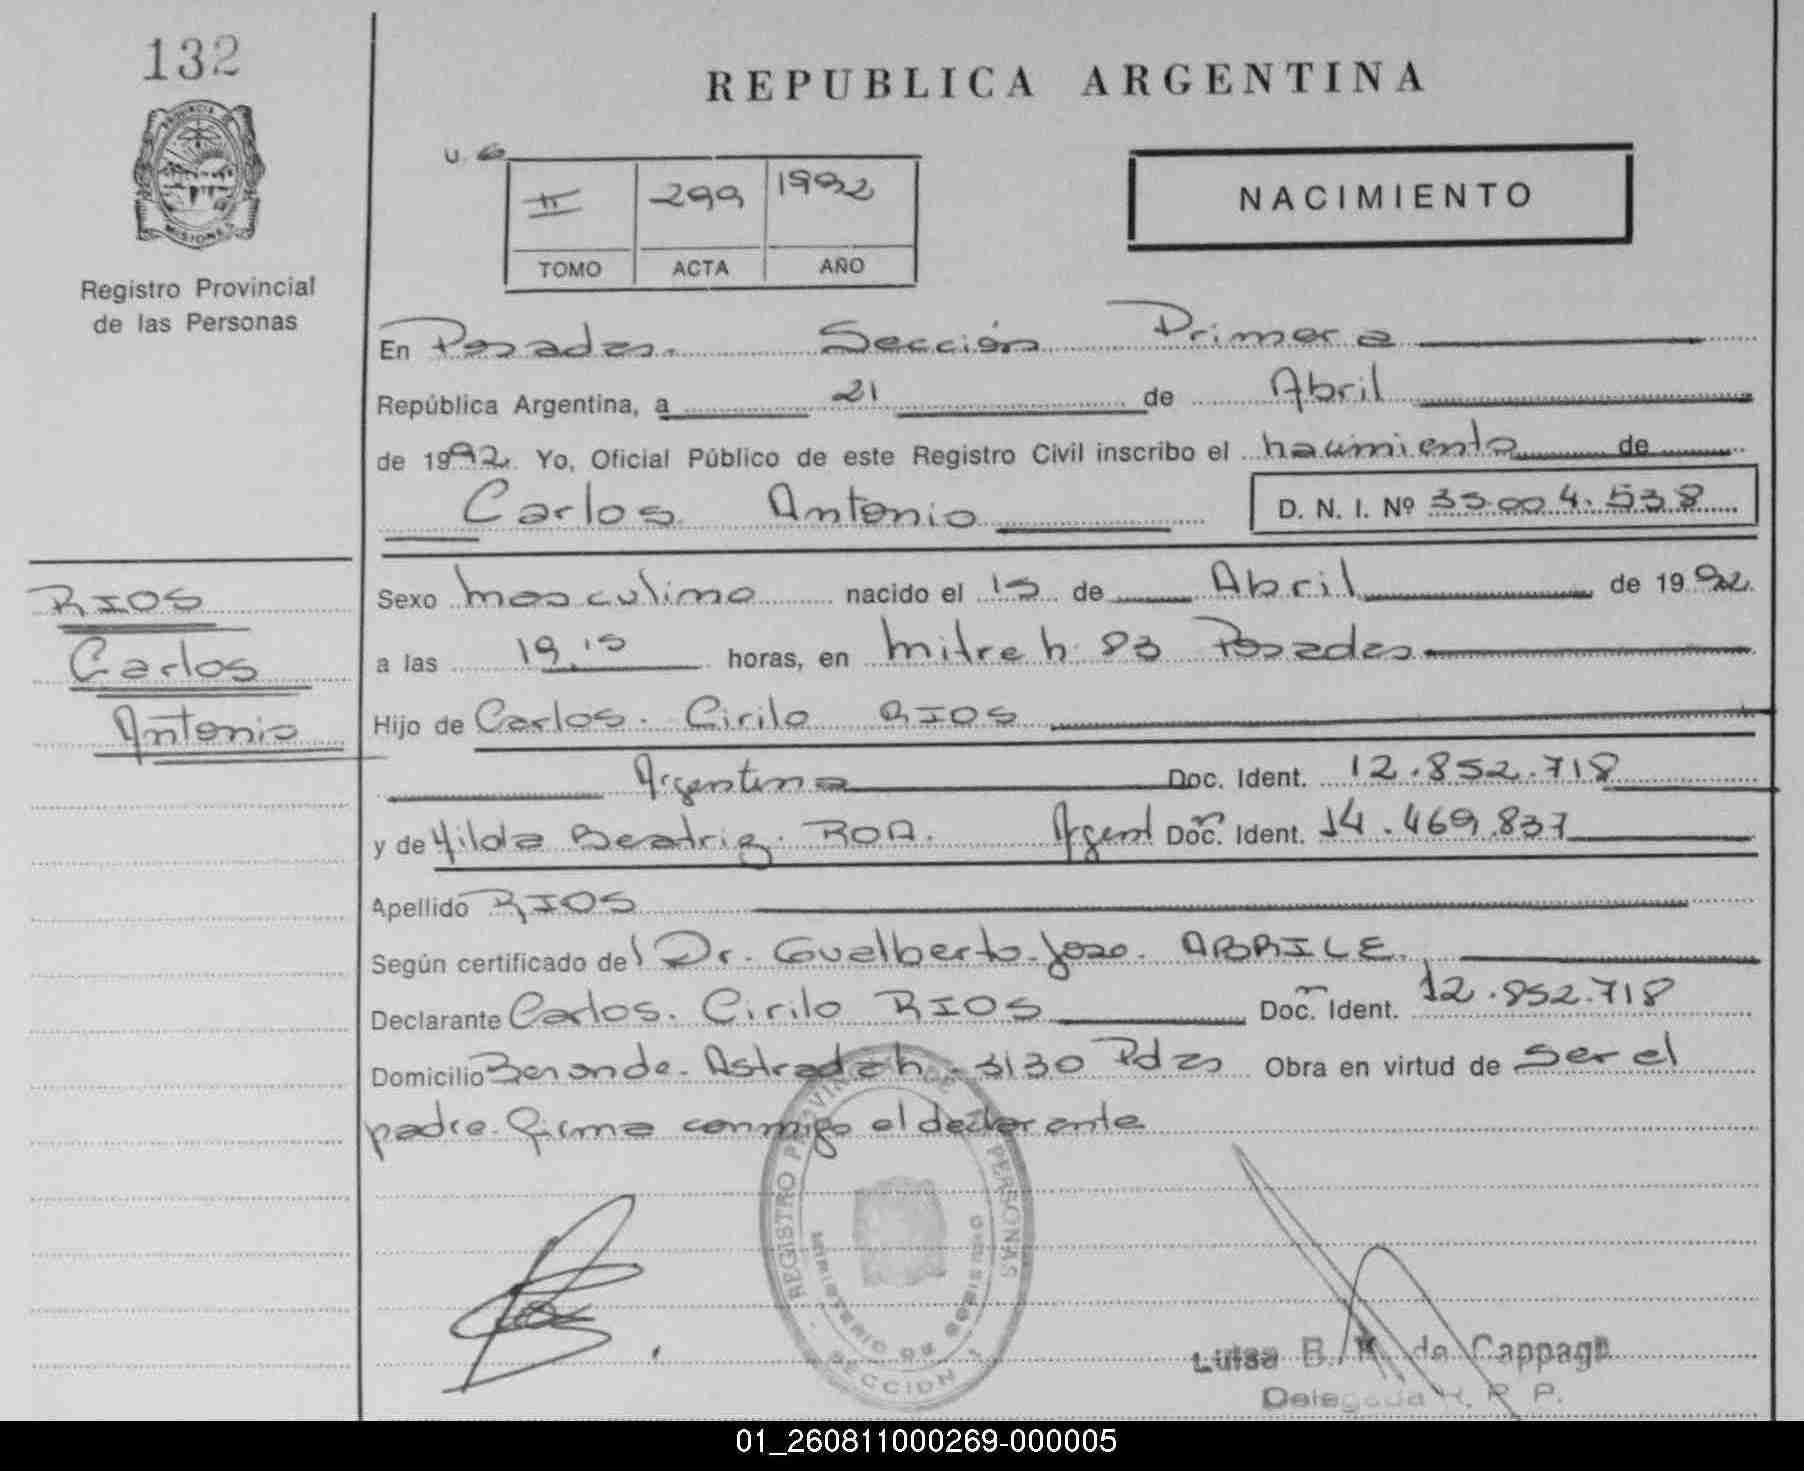 132
PROVINCIA DE
MISIONES
Registro Provincial
de las Personas
REPUBLICA ARGENTINA
U. 6
II 299 1992
TOMO ACTA AÑO
NACIMIENTO
En Posadas. Sección Primera
República Argentina, a 21 de Abril
de 1992. Yo, Oficial Público de este Registro Civil inscribo el nacimiento de
Carlos Antonio D. N. I. Nº 35.004.538
RIOS
Carlos
Antonio
Sexo masculino nacido el 15 de Abril de 1992
a las 19.15 horas, en Mitre h. 83 Posadas
Hijo de Carlos. Cirilo RIOS
Argentina Doc. Ident. 12.852.718
y de Hilda Beatriz. ROA. Argent Doc. Ident. 14.469.837
Apellido RIOS
Según certificado del Dr. Gualberto Jose. ABRILE.
Declarante Carlos. Cirilo RIOS Doc. Ident. 12.852.718
Domicilio Astrada h. 3130 Pdas Obra en virtud de ser el
padre. firma conmigo el declarante
REGISTRO PROVINCIAL DE PERSONAS
MINISTERIO DE GOBIERNO
SECCION 1
Luisa B. K. de Cappagn
Delegada R. P. P.
01_260811000269-000005